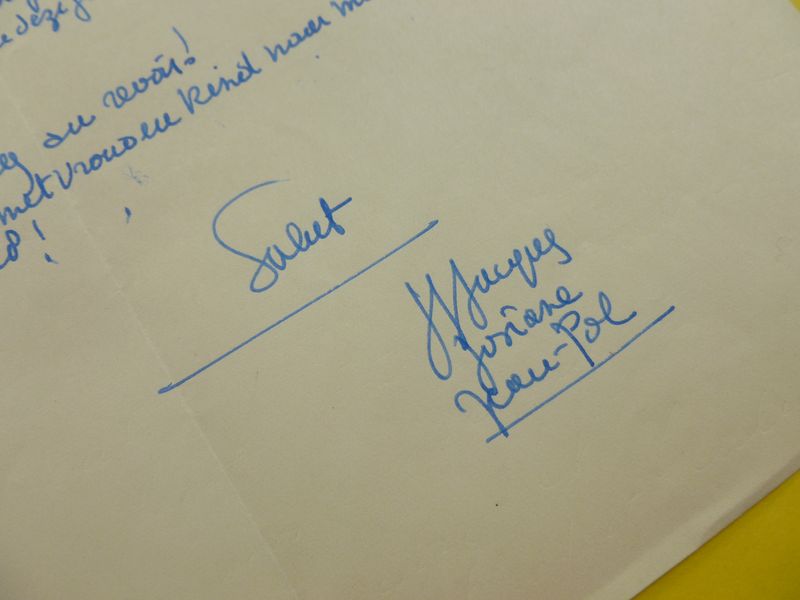 au revoir!
met vrouw en kind naar
Salut
J Jacques
Josiane
Jean-Pol